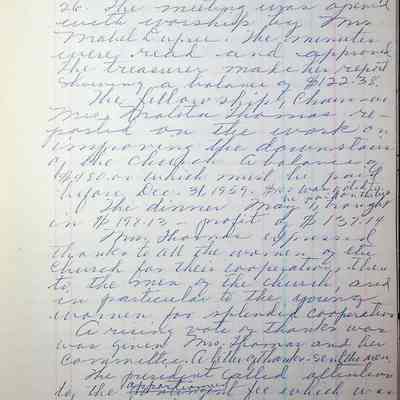 26. The meeting was opened
with worship by Mrs.
Mabel Dupree. The minutes
were read and approved.
The treasurer made her report
showing a balance of $122.38.
The fellowship Chairman
Mrs. Thomas re-
ported on the work on
improving the downstairs
of the church. A balance of
$480.00 which must be paid
before Dec. 31, 1959. $
The dinner May brought
in $194.13 - profit of $139.14
Mrs. Thomas expressed
thanks to all the women of the
church for their cooperation, then
to the men of the church, and
in particular to the young
women for splendid cooperation
A rising vote of thanks was
was given Mrs. Thomas and her
Committee. A letter of thanks sent the men.
The president called attention
to the apportionment fee which was